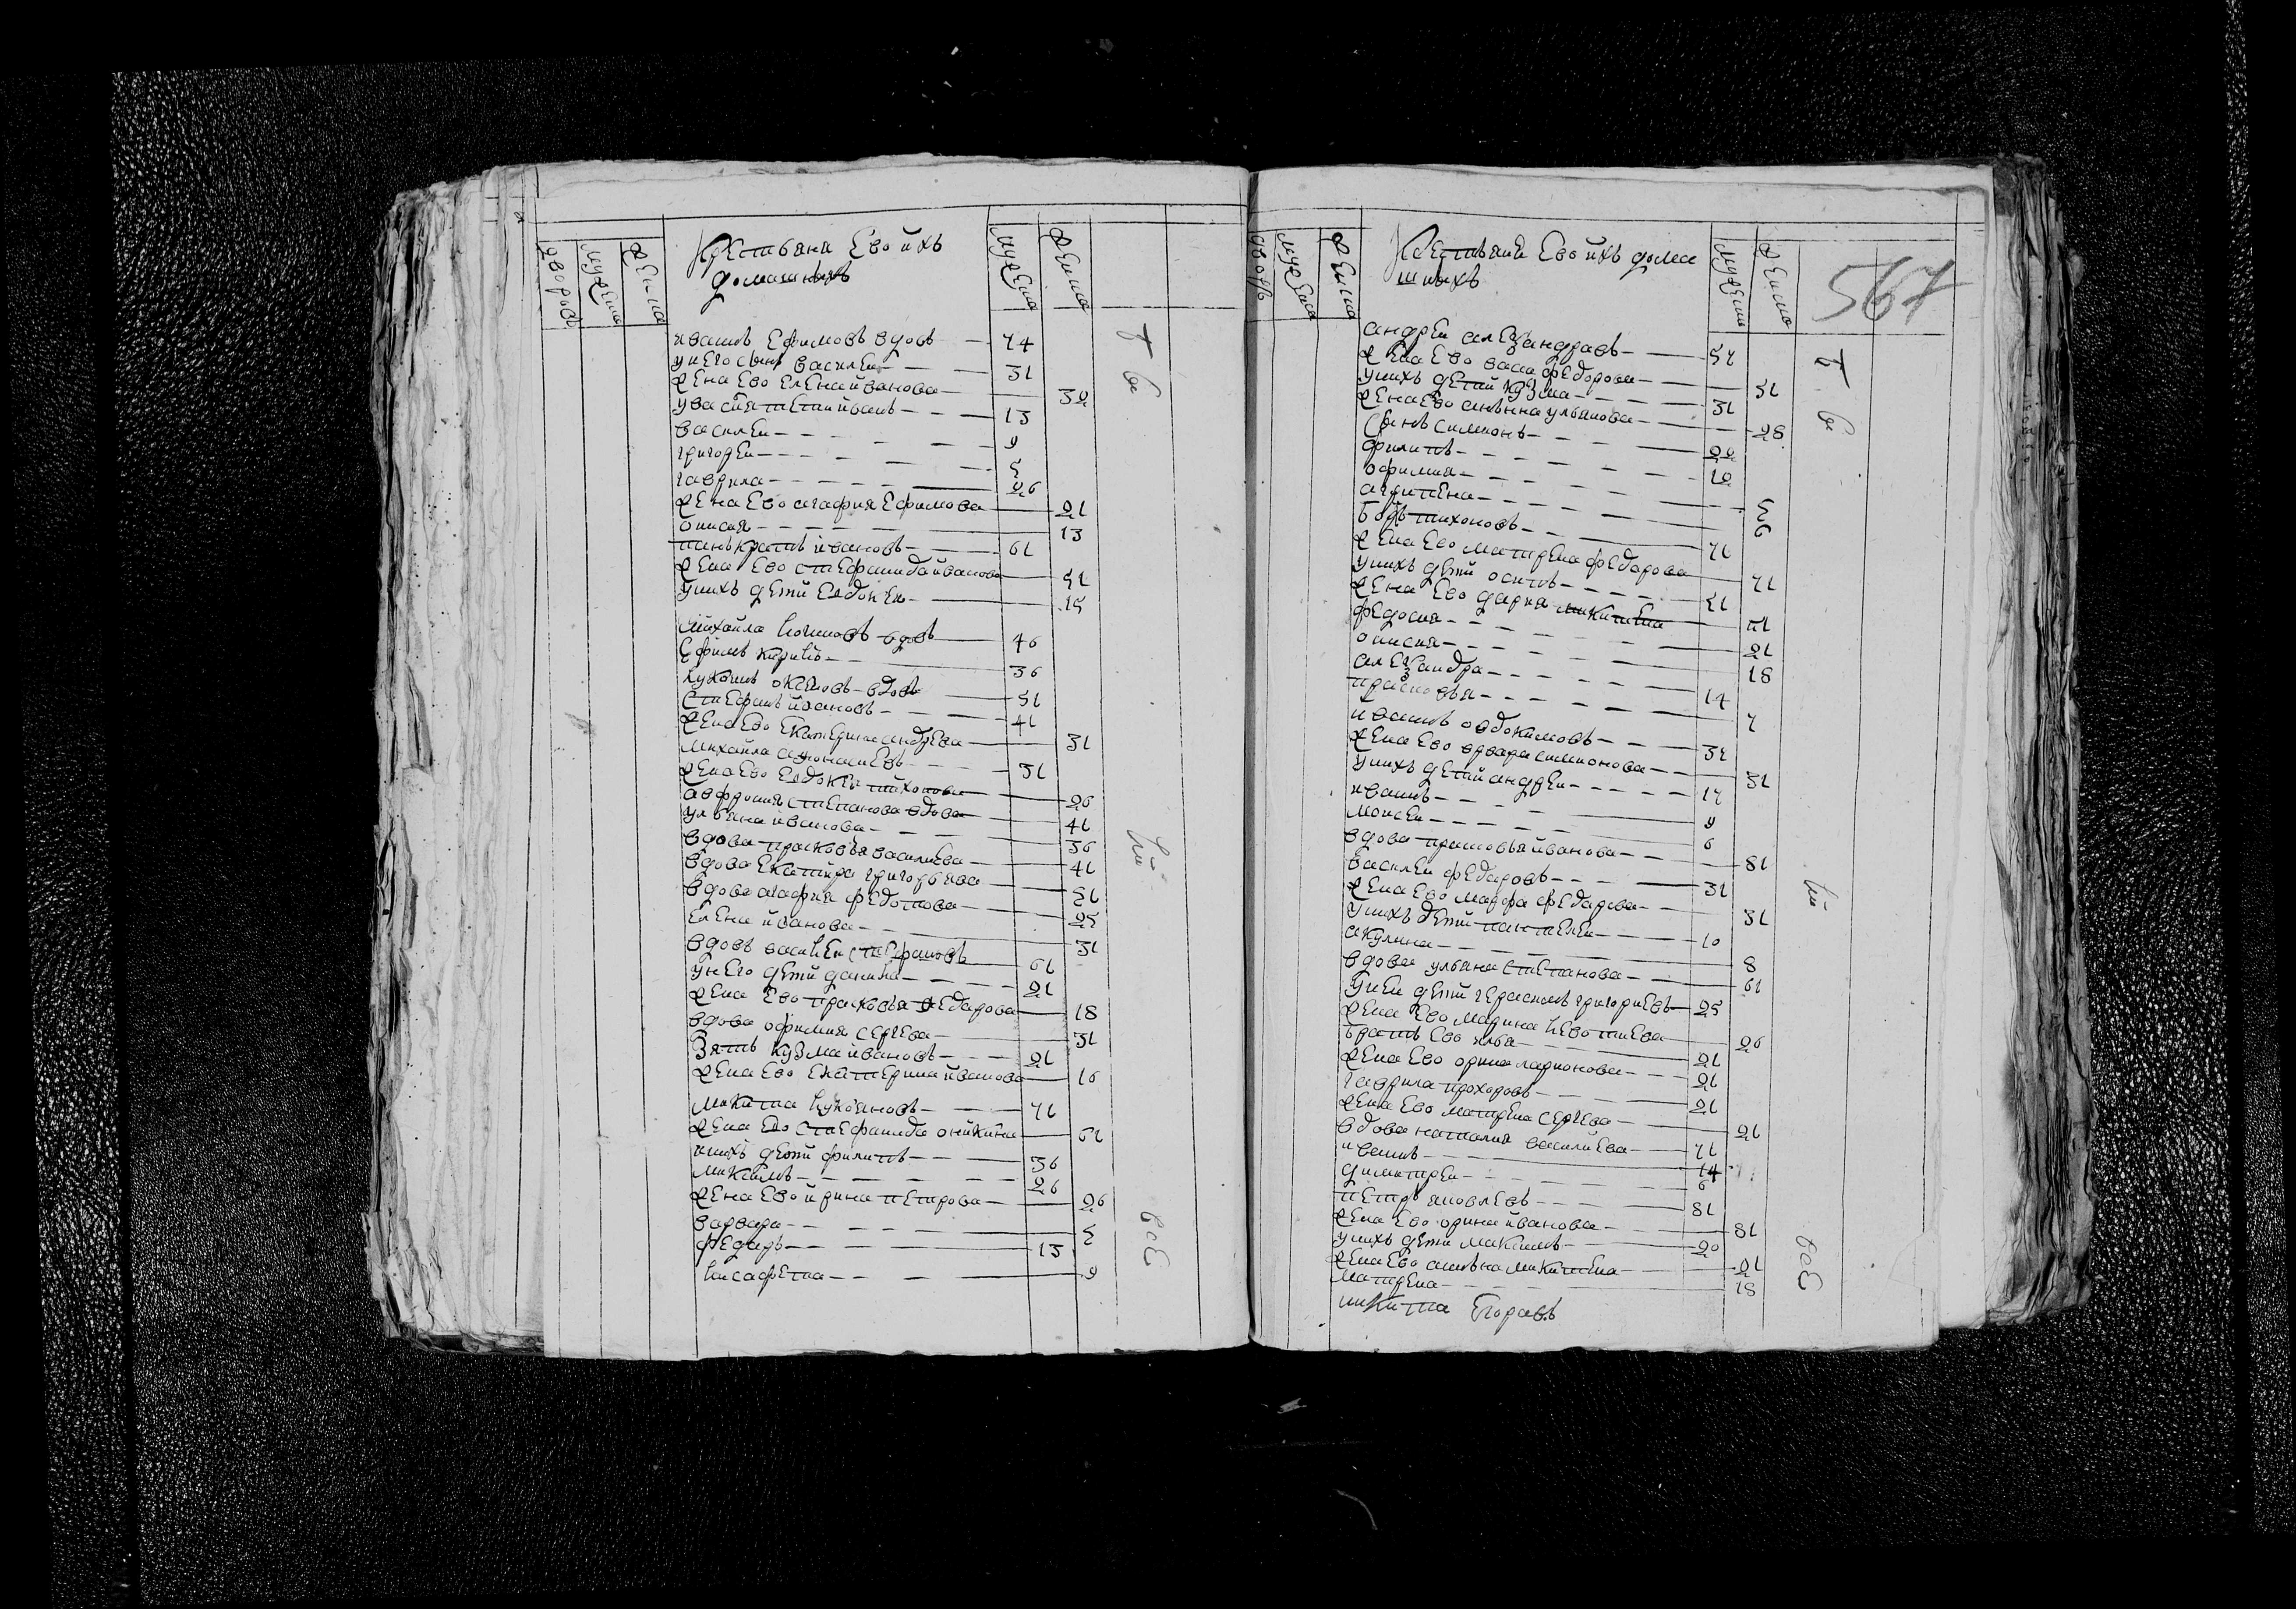 дворовъ
мужеска
женска
Крестьяня Ево и ихъ
домашнихъ
мужеска
женска
иванъ Ефимовъ вдовъ 74
у него сынъ василеи 31
жена Ево Елена иванова 30
у васиlя дети иванъ 13
василеи 9
григореи 5
гаврила 26
жена Ево агафия Ефимова 21
онисия 13
панъкратъ ивановъ 61
жена Ево стефанида иванова 51
у нихъ дети Евдокея 15
михаила вдовъ 46
Ефимъ 36
вдовъ 51
стефанъ ивановъ 41
жена Ево Екатерина андреева 31
михаила 31
жена Ево Евдокея тихонова 26
степанова вдова 41
ульяна иванова 36
вдова прасковья василиева 41
вдова григорьева 51
вдова агафия федотова 25
Елена иванова 31
вдовъ василеи стефановъ 61
у него дети данила 21
жена Ево прасковья федарова 18
вдова офимия сергева 31
зять кузма ивановъ 21
жена Ево Екатерина иванова 16
микита лукьяновъ 71
жена Ево стефанида аникина 61
у нихъ дети филипъ 36
максимъ 26
жена Ево ирина петрова 26
варвара 5
федаръ 13
лисафета 9
дворовъ
мужеска
женска
Крестьяня Ево и ихъ дома
шнихъ
мужеска
женска
567
андреи алеѯандравъ 57
жена Ево васа федорова 51
у нихъ дети кузма 31
жена Ево анънна ульянова 28
сынъ симионъ
филипъ
офимия 5
агрипена 6
тихоновъ 71
жена Ево матрена федарова 71
у нихъ дети осипъ 51
жена Ево дария микитена
федосия 21
онисия 18
алеѯандра 14
прасковья 7
иванъ овдокимовъ 37
жена Ево варвара симионова 31
у нихъ дети андреи 17
иванъ 9
моисеи 6
вдова прасковья иванова 81
василеи федаровъ 31
жена Ево марфа федарова 31
у нихъ дети пантелеи 10
акулина 8
вдова ульяна степанова 61
у неи дети герасимъ григориевъ 25
жена Ево марина 26
братъ Ево илья 21
жена Ево орина ларионова 21
гаврила прохоровъ 21
жена Ево матрена сергева 21
вдова наталия василиева 71
иванъ 14
димитреи 6
петръ яковлевъ 81
жена Ево орина иванова 81
у нихъ дети максимъ 20
жена Ево анъна микитена 21
матрена 18
никита Егоравъ